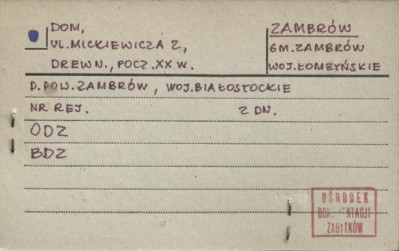 DOM,
UL. MICKIEWICZA 2,
DREWN., POCZ. XX W.
ZAMBRÓW
GM. ZAMBRÓW
WOJ. ŁOMŻYŃSKIE
D. POW. ZAMBRÓW, WOJ. BIAŁOSTOCKIE
NR REJ. Z DN.
ODZ
BDZ
OŚRODEK
DOKUMENTACJI
ZABYTKÓW